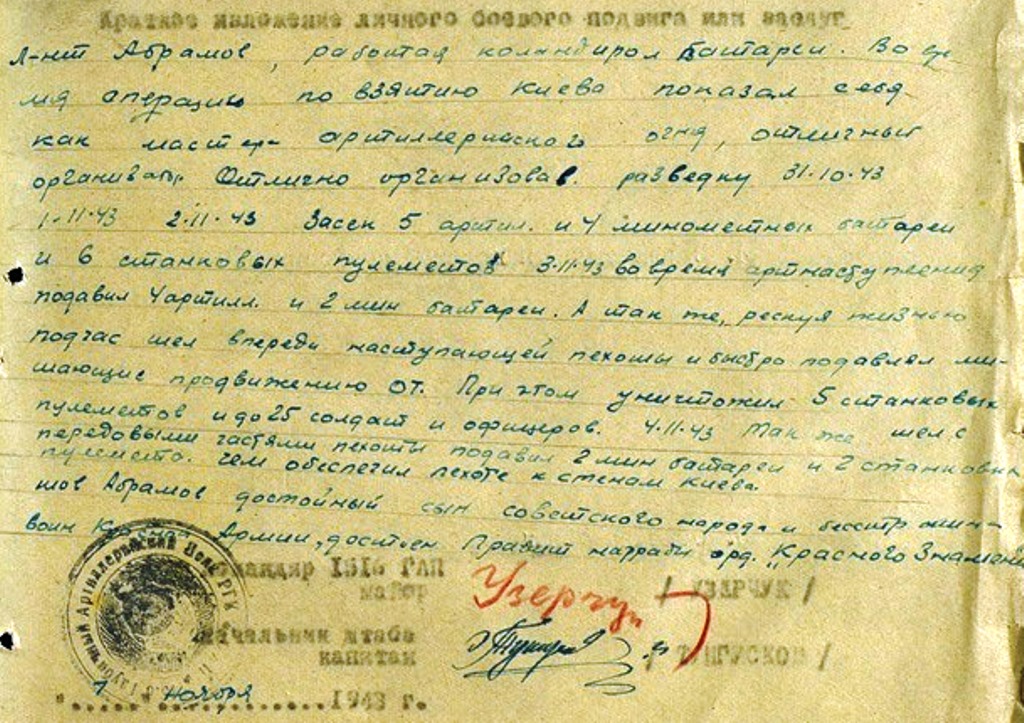 Краткое изложение личного боевого подвига или заслуг
Л-нт Абрамов, работая командиром батареи. Во вре
мя операцию по взятию Киева показал себя
как мастер артиллерииского огня, отличный
организатр. Отлично организовав. разведку 31.10.43
1.11.43 2.11.43 Засек 5 артил. и 4 минометных батареи
и 6 станковых пулеметов 3.11.43 во время артнаступления
подавил 4 артилл. и 2 мин батареи. А так же, рескуя жизнью
подчас шел впереди наступающей пехоты и быстро подавлял ме-
шающие продвижению ОТ. При этом уничтожил 5 станковых
пулеметов и до 25 солдат и офицеров. 4.11.43 Так же шел с
передовыми частями пехоты подавил 2 мин батареи и 2 станковых
пулемета. чем обеспечил пехоте к стенам Киева.
Абрамов достойный сын советского народа и
воин Армии, достоен Правит награды орд. "Красного Знамени
Командир 1816 ГАП
майор Узерчук / УЗЕРЧУК /
Начальник штаба
капитан / ТУНГУСКОВ /
"7" ноября 1943 г.